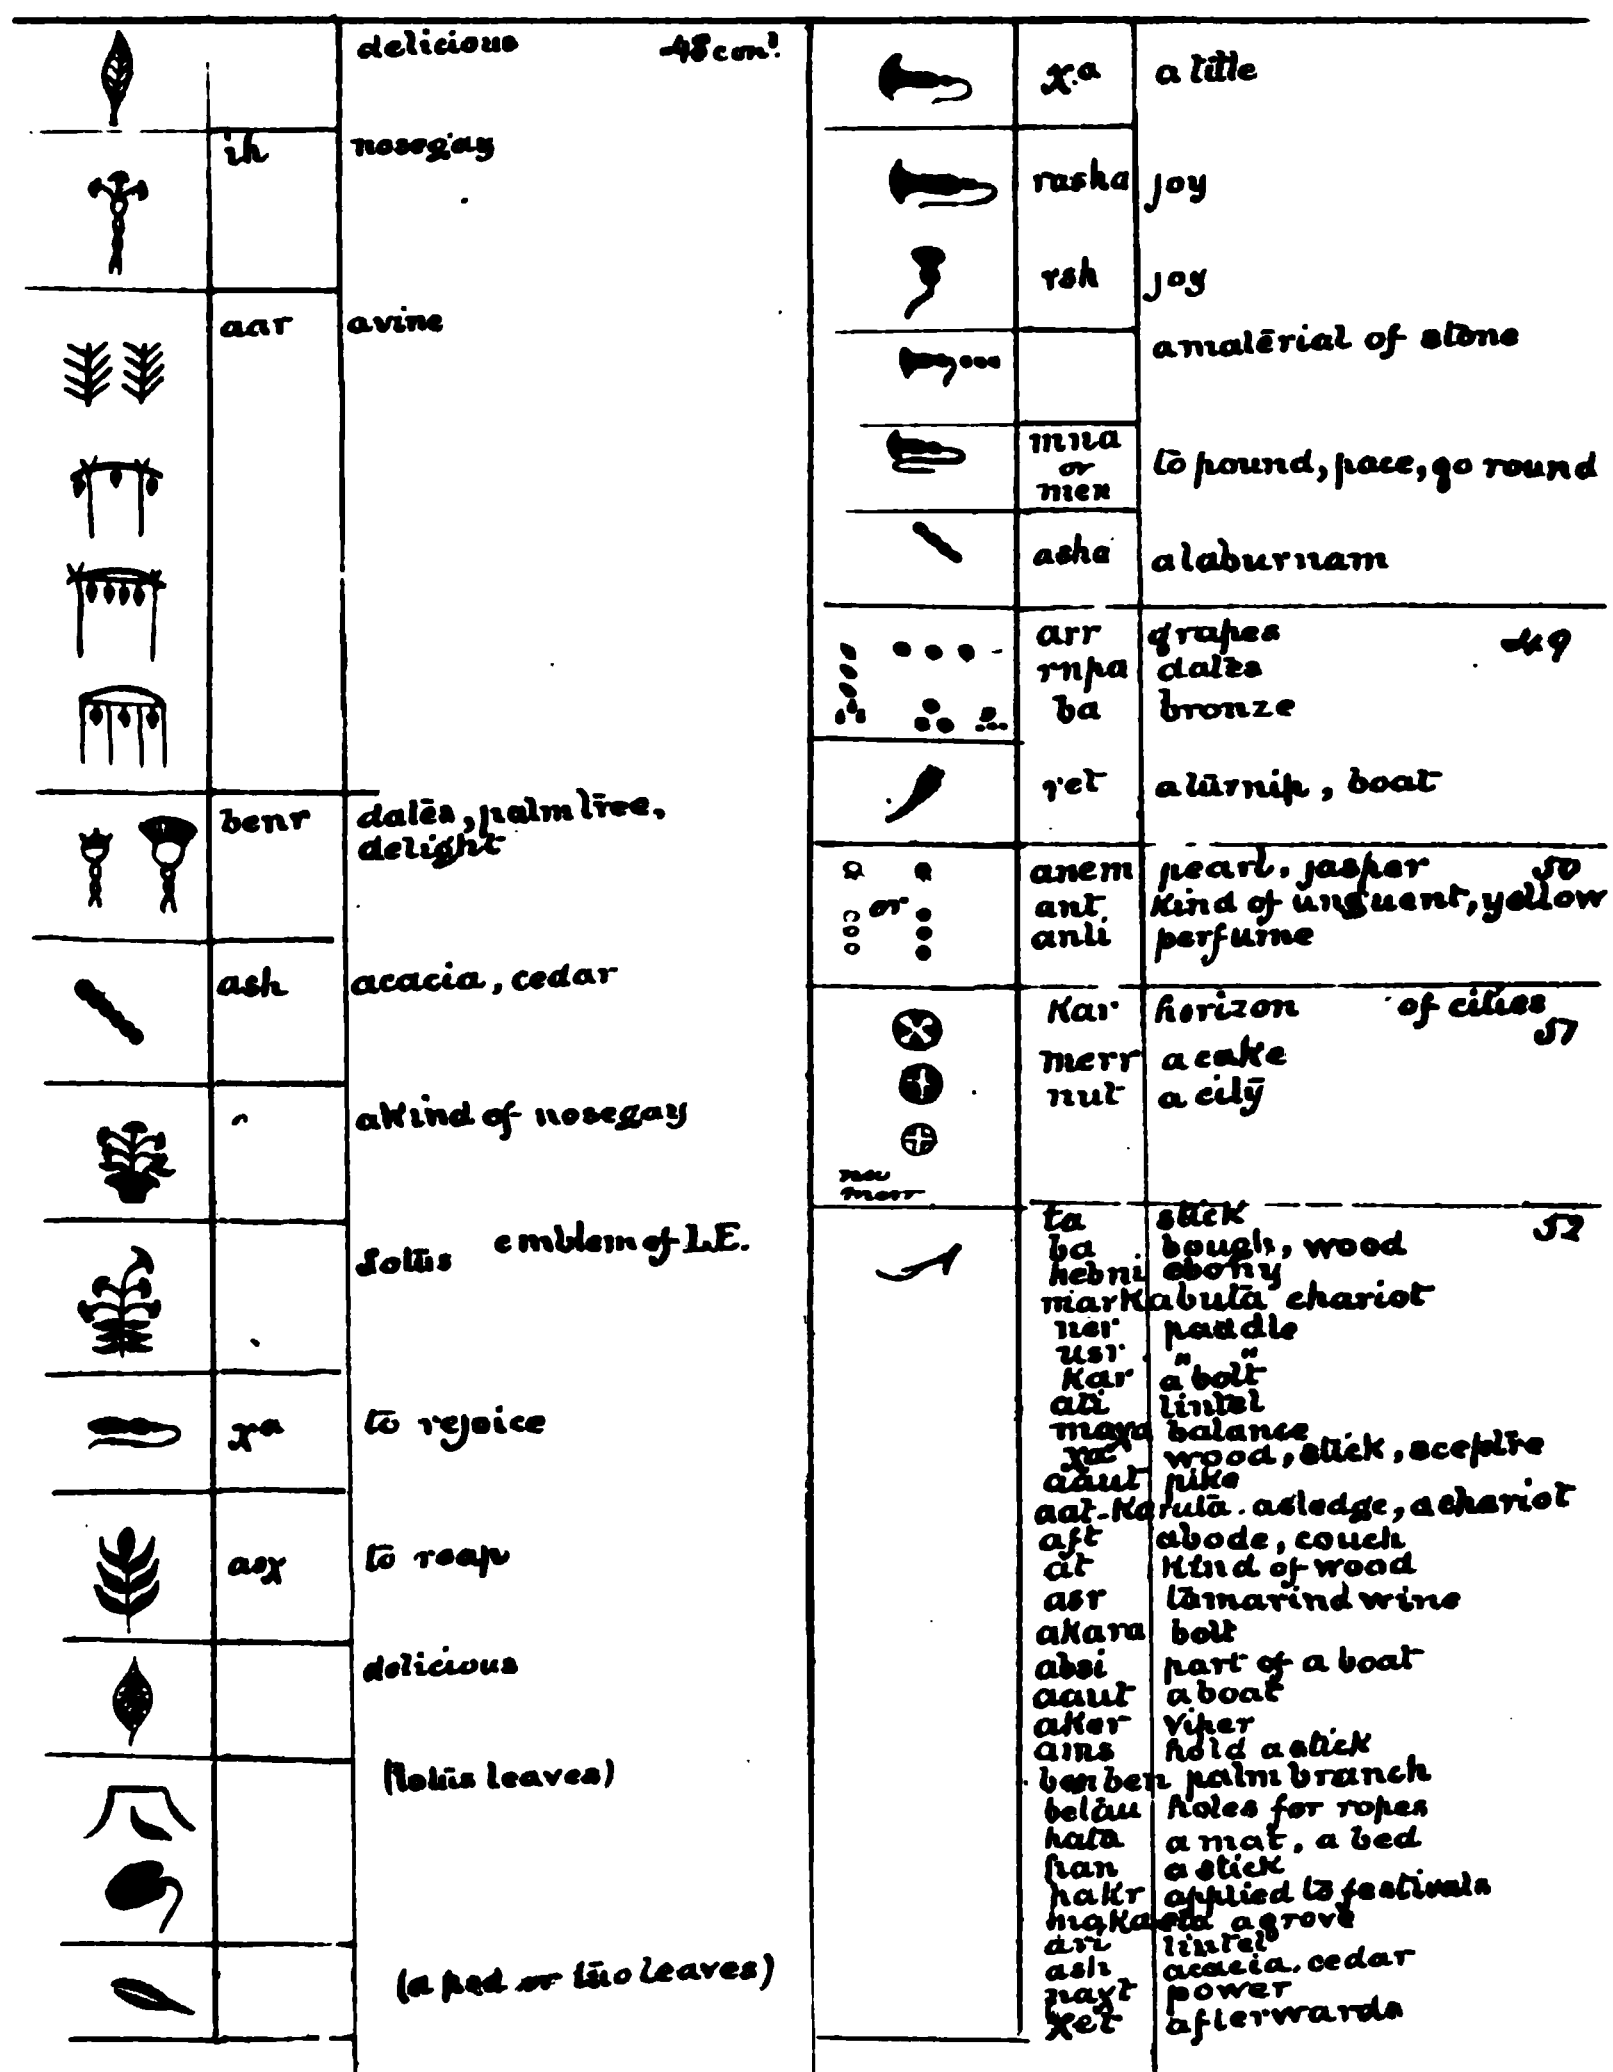 delicious 48 con.d
ih nosegay
aar a vine
benr dates, palm tree,
delight
ash acacia, cedar
a kind of nosegay
Lotus emblem of L.E.
χa to rejoice
asχ to reap
delicious
(lotus leaves)
(a pod or two leaves)
χa a title
rasha joy
rsh joy
a material of stone
mna
or to pound, pace, go round
men
asha a laburnam
arr grapes 49
rnpa dates
ba bronze
ret a turnip, boat
anem pearl, jasper 50
or ant kind of unguent, yellow
anti perfume
Kar horizon of cities
51
merr a cake
nut a city
nu
merr
ta stick 52
ba bough, wood
hebni ebony
markabuta chariot
ner paddle
usr " "
Kar a bolt
ati lintel
maχa balance
χa wood, stick, sceptre
aaut pike
aat-Karuta. a sledge, a chariot
aft abode, couch
at kind of wood
asr tamarind wine
akara bolt
absi part of a boat
aaut a boat
aker viper
ams hold a stick
benben palm branch
betau holes for ropes
hata a mat, a bed
han a stick
hakr applied to festivals
a grove
ari lintel
ash acacia. cedar
naχt power
χet afterwards